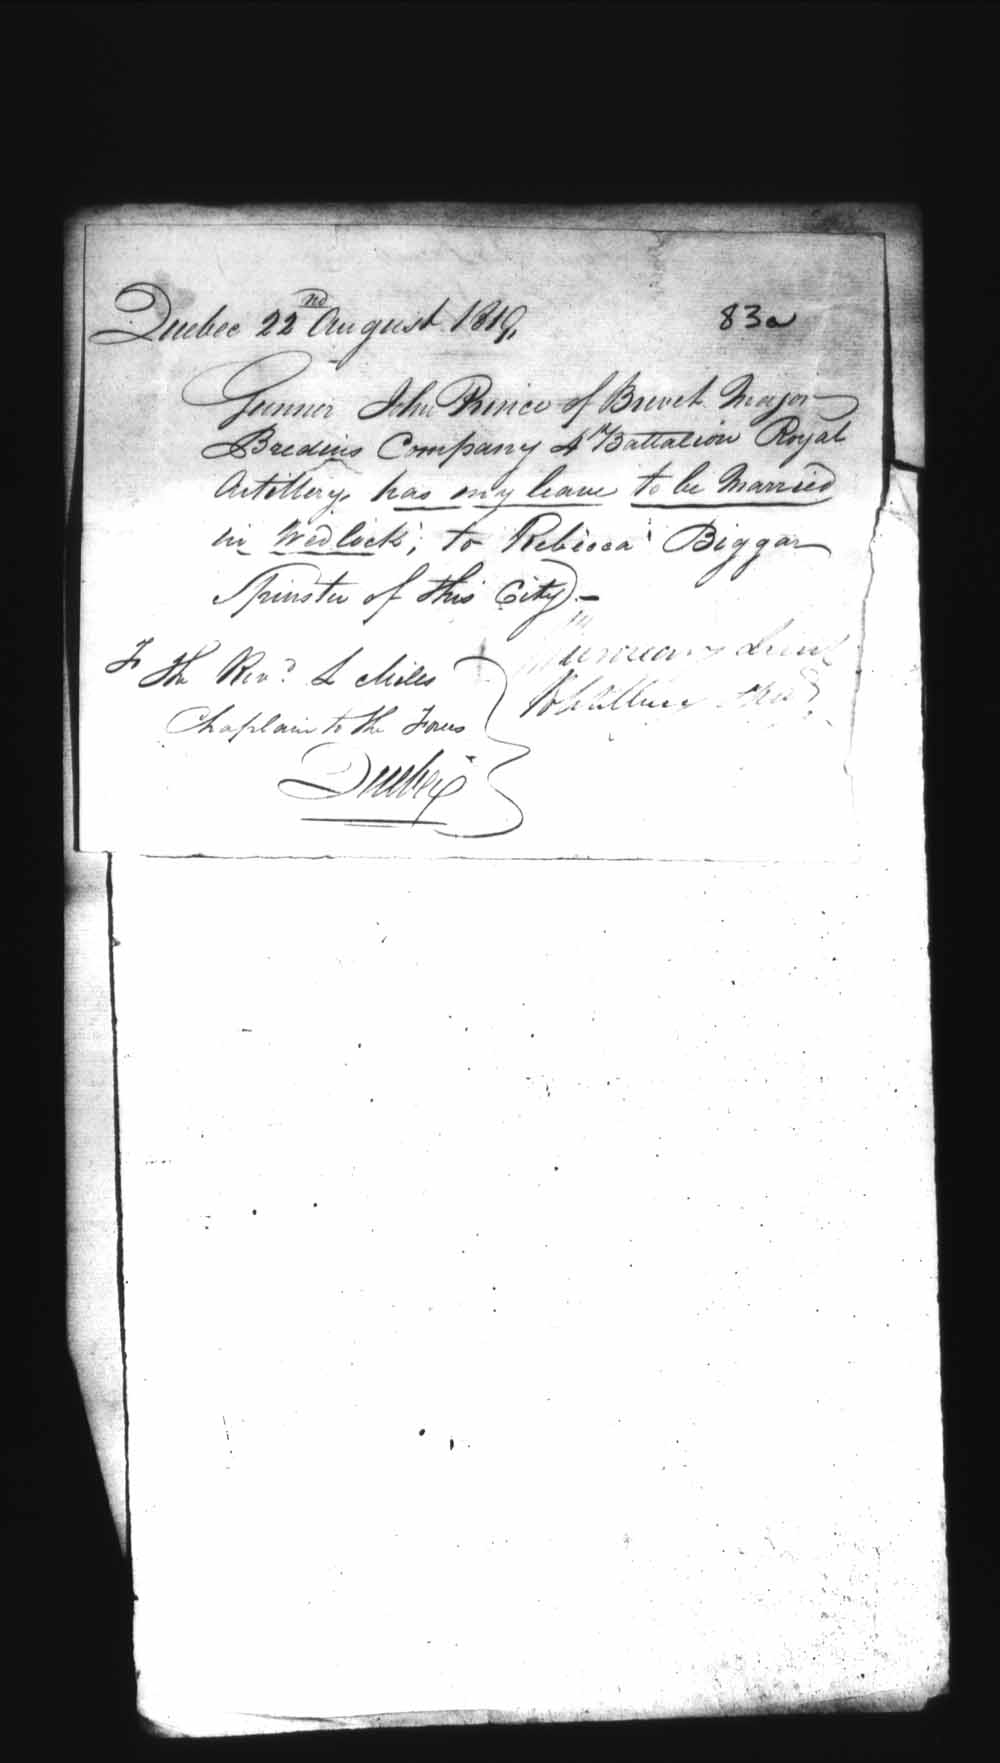 Quebec 22nd August 1819,
83a
Gunner John Prince of Brevet Major
Bredins Company 4th Battalion Royal
Artillery, has my leave to be Married
in Wedlock; to Rebecca Biggar
Spinster of this City).—
To
The Revd. Mills
Chaplain to the Forces
Quebec